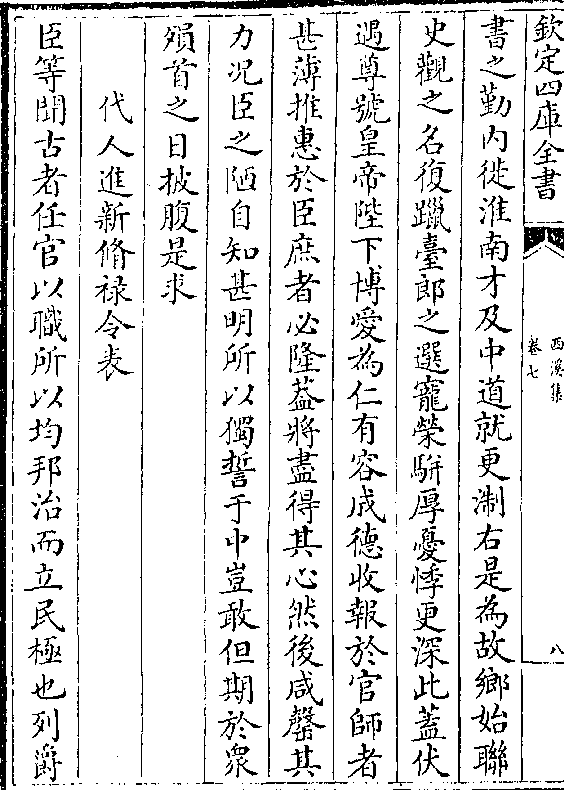 欽定四庫全書
西溪集
卷七
八
書之勤内徙淮南才及中道就更淛右是為故鄉始聯
史觀之名復躐臺郎之選寵榮駢厚憂悸更深此蓋伏
遇尊號皇帝陛下博愛為仁有容成德收報於官師者
甚薄推惠於臣庶者必隆蓋將盡得其心然後咸罄其
力况臣之陋自知甚明所以獨誓于中豈敢但期於衆
殞首之日披腹是求
代人進新脩禄令表
臣等聞古者任官以職所以均邦治而立民極也列爵